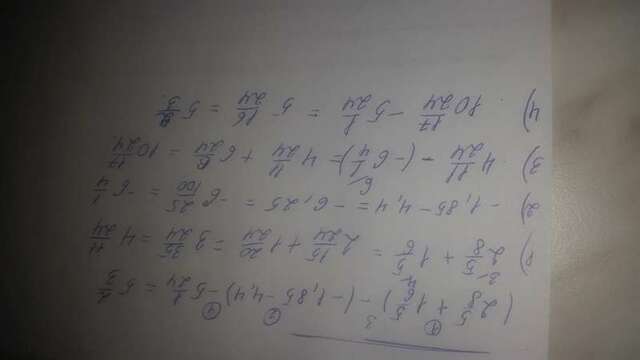 (2 5/8 + 1 5/6) - (-1,85 - 4,4) - 5 1/24 = 5 2/3
1) 2 5/8 + 1 5/6 = 2 15/24 + 1 20/24 = 3 35/24 = 4 11/24
2) -1,85 - 4,4 = -6,25 = -6 25/100 = -6 1/4
3) 4 11/24 - (-6 1/4) = 4 11/24 + 6 6/24 = 10 17/24
4) 10 17/24 - 5 1/24 = 5 16/24 = 5 2/3.